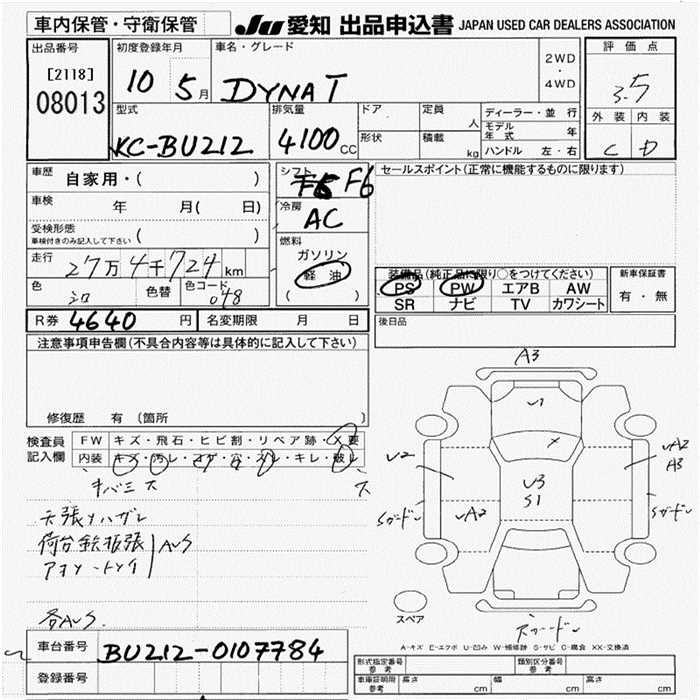 車内保管・守衛保管
JU 愛知 出品申込書 JAPAN USED CAR DEALERS ASSOCIATION
出品番号
[2118]
08013
初度登録年月
10 5月
車名・グレード
DYNA T
2WD
・
4WD
評価点
3.5
外装 内装
C D
型式
KC-BU212
排気量
4100cc
ドア
形状
定員 人
積載 kg
ディーラー・並行
モデル年式 年
ハンドル 左・右
車歴 自家用・( )
車検 年 月( 日)
受検形態
車検付きのみ記入して下さい ( )
走行 27万4千724km
色 シロ 色替 色コード 048
シフト F6
冷房 AC
燃料
ガソリン
軽油
( )
セールスポイント(正常に機能するものに限ります)
装備品(純正品に限り○をつけてください)
PS PW エアB AW
SR ナビ TV カワシート
新車保証書
有・無
後日品
R券 4640円 名変期限 月 日
注意事項申告欄(不具合内容等は具体的に記入して下さい)
修復歴 有 〔箇所 〕
検査員記入欄
FW キズ・飛石・ヒビ割・リペア跡・X要
内装 キズ・汚レ・コゲ・穴・スレ・キレ・破レ
天張りハガレ
AUS
各AUS
A3
U1
U2
U3
S1
UA2
UA2
A3
Sガードレ
Sガードレ
スペア
A-キズ E-エクボ U-凹み W-補修跡 S-サビ C-腐食 XX-交換済
車台番号 BU212-0107784
登録番号
形式指定番号 参考
類別区分番号 参考
車庫証明用 参考 長さ cm 幅 cm 高さ cm